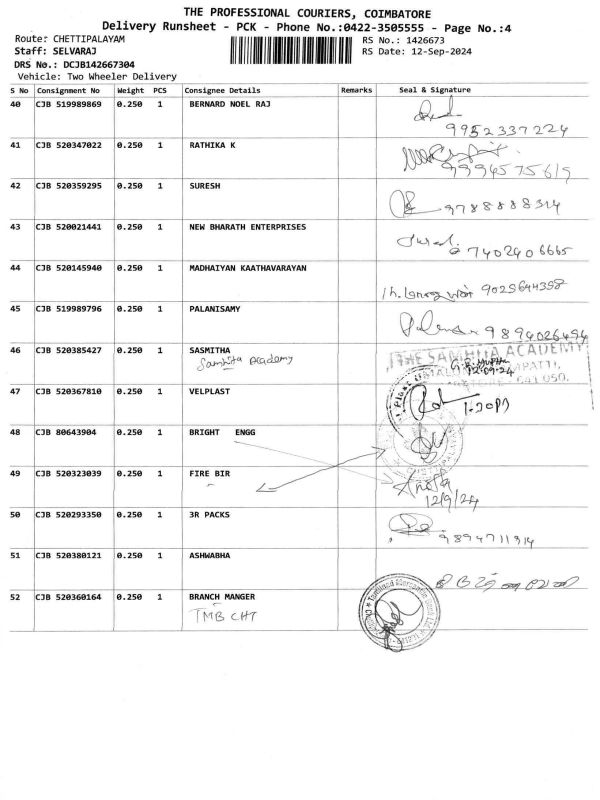 THE PROFESSIONAL COURIERS, COIMBATORE
Delivery Runsheet - PCK - Phone No.:0422-3505555 - Page No.:4
Route: CHETTIPALAYAM
RS No.: 1426673
Staff: SELVARAJ
RS Date: 12-Sep-2024
DRS No.: DCJB142667304
Vehicle: Two Wheeler Delivery
S No Consignment No Weight PCS Consignee Details Remarks Seal & Signature
40 CJB 519989869 0.250 1 BERNARD NOEL RAJ
9952337224
41 CJB 520347022 0.250 1 RATHIKA K
9994575619
42 CJB 520359295 0.250 1 SURESH
9788888314
43 CJB 520021441 0.250 1 NEW BHARATH ENTERPRISES
7402406665
44 CJB 520145940 0.250 1 MADHAIYAN KAATHAVARAYAN
9025644358
45 CJB 519989796 0.250 1 PALANISAMY
9894026494
46 CJB 520385427 0.250 1 SASMITHA
Samhita Academy
THE SAMHITA ACADEMY
12.09.24
641 050.
47 CJB 520367810 0.250 1 VELPLAST
48 CJB 80643904 0.250 1 BRIGHT ENGG
49 CJB 520323039 0.250 1 FIRE BIR
12/9/24
50 CJB 520293350 0.250 1 3R PACKS
9894711914
51 CJB 520380121 0.250 1 ASHWABHA
52 CJB 520360164 0.250 1 BRANCH MANGER
TMB CHT
Tamilnad Mercantile Bank Ltd